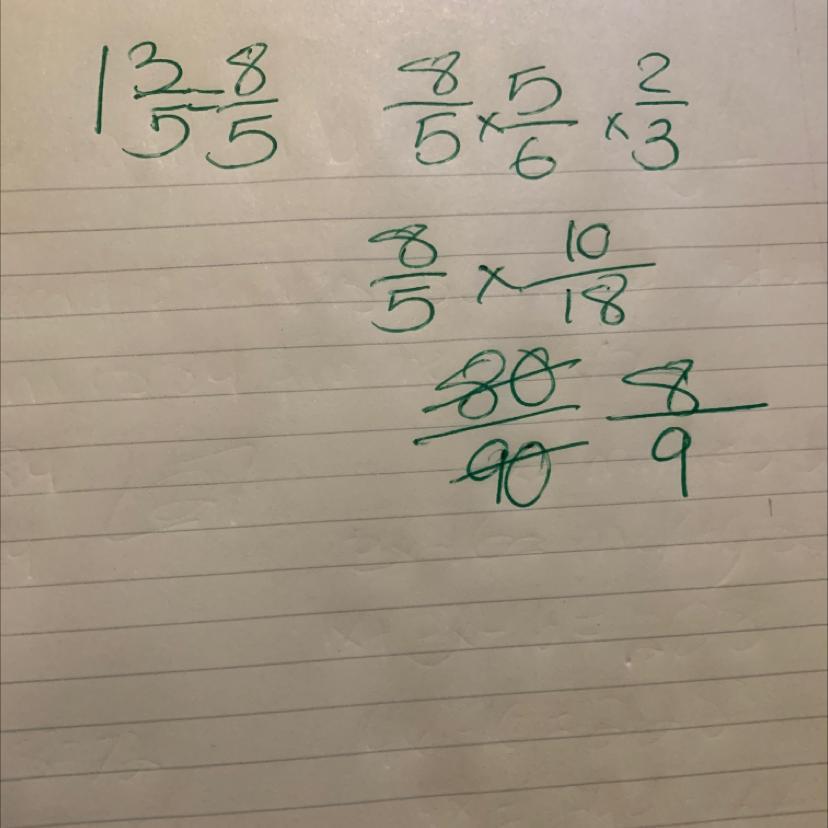 1 3/5 = 8/5 8/5 × 5/6 × 2/3
8/5 × 10/18
80/90 8/9